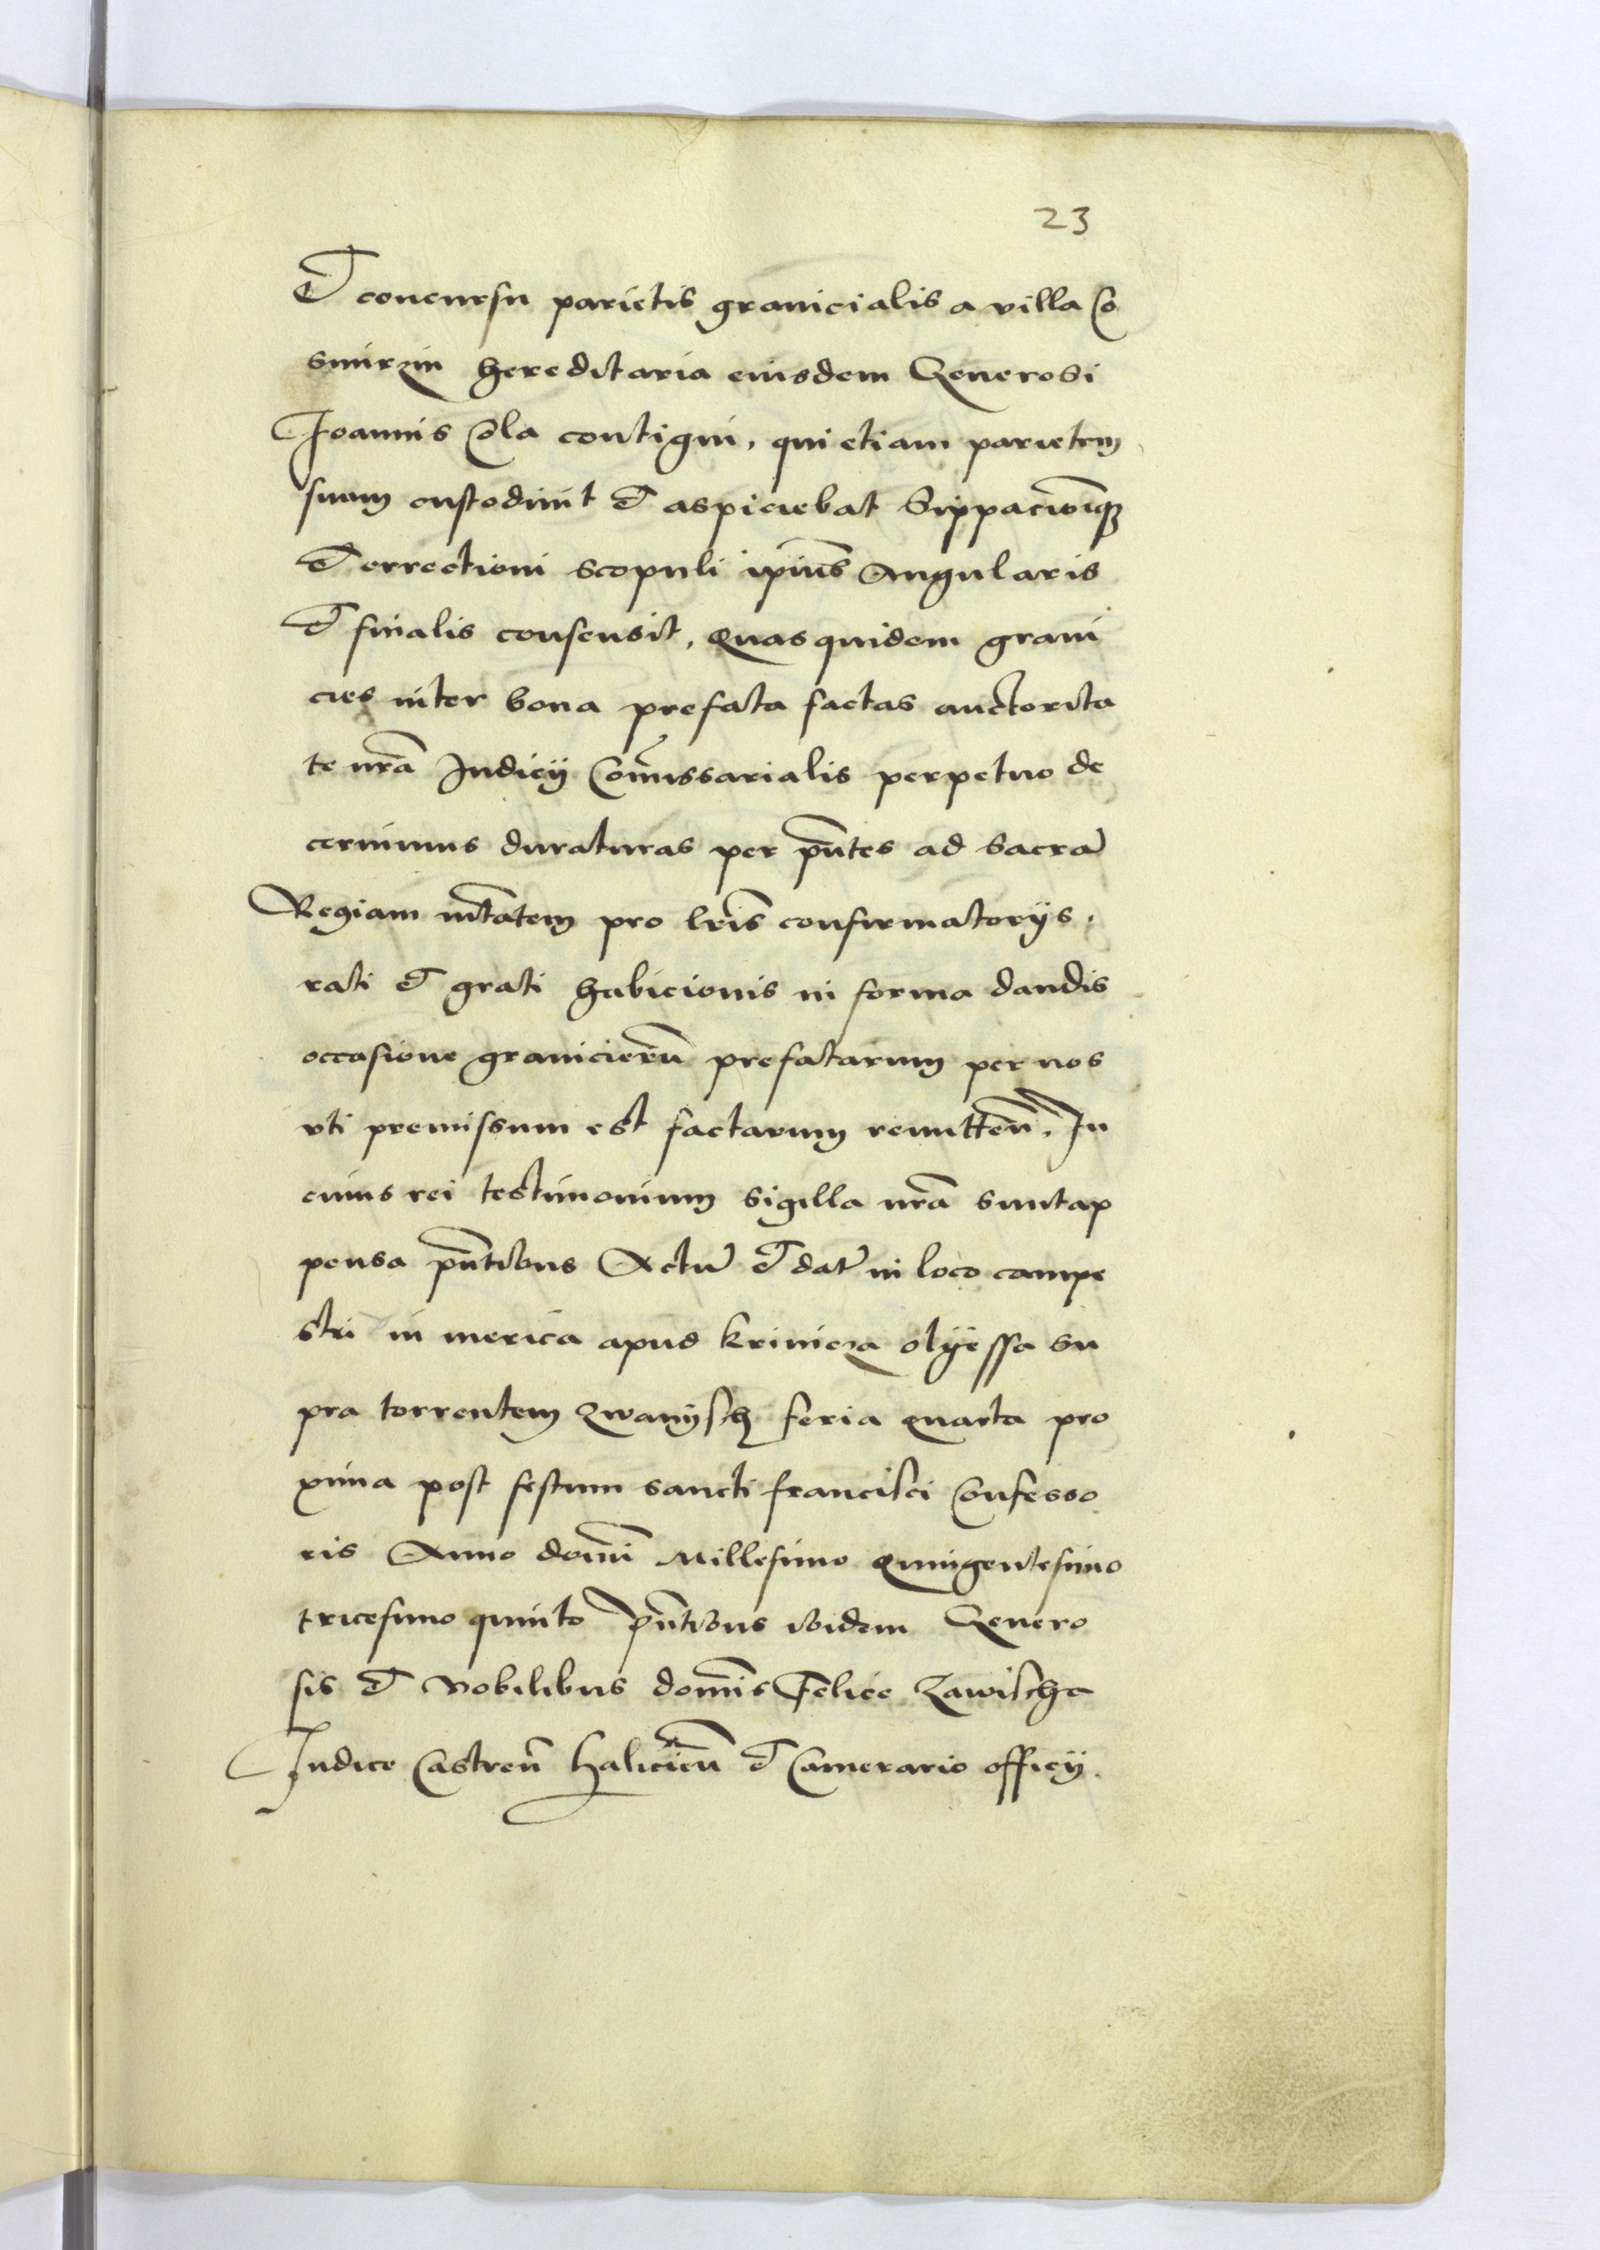 23
Et concursu parietis granicialis a villa Co
smirzin hereditaria eiusdem Generosi
Joannis Cola contigui, qui etiam parietem
suam custodiuit et aspiciebat Sippacionīqȝ
et errectioni scopuli ip̄ius Angularis
et finalis consensit, quas quidem grani
cies inter bona prefata factas auctorita
te nr̄a Judicij Com̄issarialis perpetuo de
cernimus duraturas per pn̄tes ad sacrā
Regiam mt̄atem pro lr̄is confirmatorijs
rati et grati habicionis in forma dandis
occasione granicierū prefatarum per nos
vti premissum est factarum remitten̄. In
cuius rei testimonium sigilla nr̄a sunt ap
pensa pn̄tibus Actū et dat̄ in loco campe
stri in merica apud Krinicza olÿessa su
pra torrentem Zwanÿsch feria quarta pro
xima post festum sancti francisci Confesso
ris Anno dom̄i Millesimo quingentesimo
tricesimo quinto pn̄tibus ibidem Genero
sis et Nobilibus dom̄is Felice Zawischa
Judice Castren̄ halicien̄ et Camerario officij